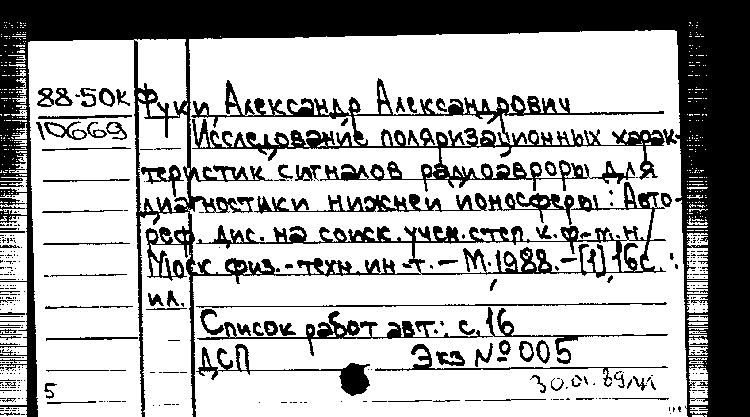 88-50К Фуки Александр Александрович
10669 Исследование поляризационных харак-
теристик сигналов радиоавроры для
диагностики нижней ионосферы: Авто-
реф. дис. на соиск. учен. степ. к. ф-м. н.
Моск. физ.-техн. ин-т. – М., 1988. – [1], 16с. :
ил.
Список работ авт.: с. 16
ДСП Экз № 005
5 30.01.89